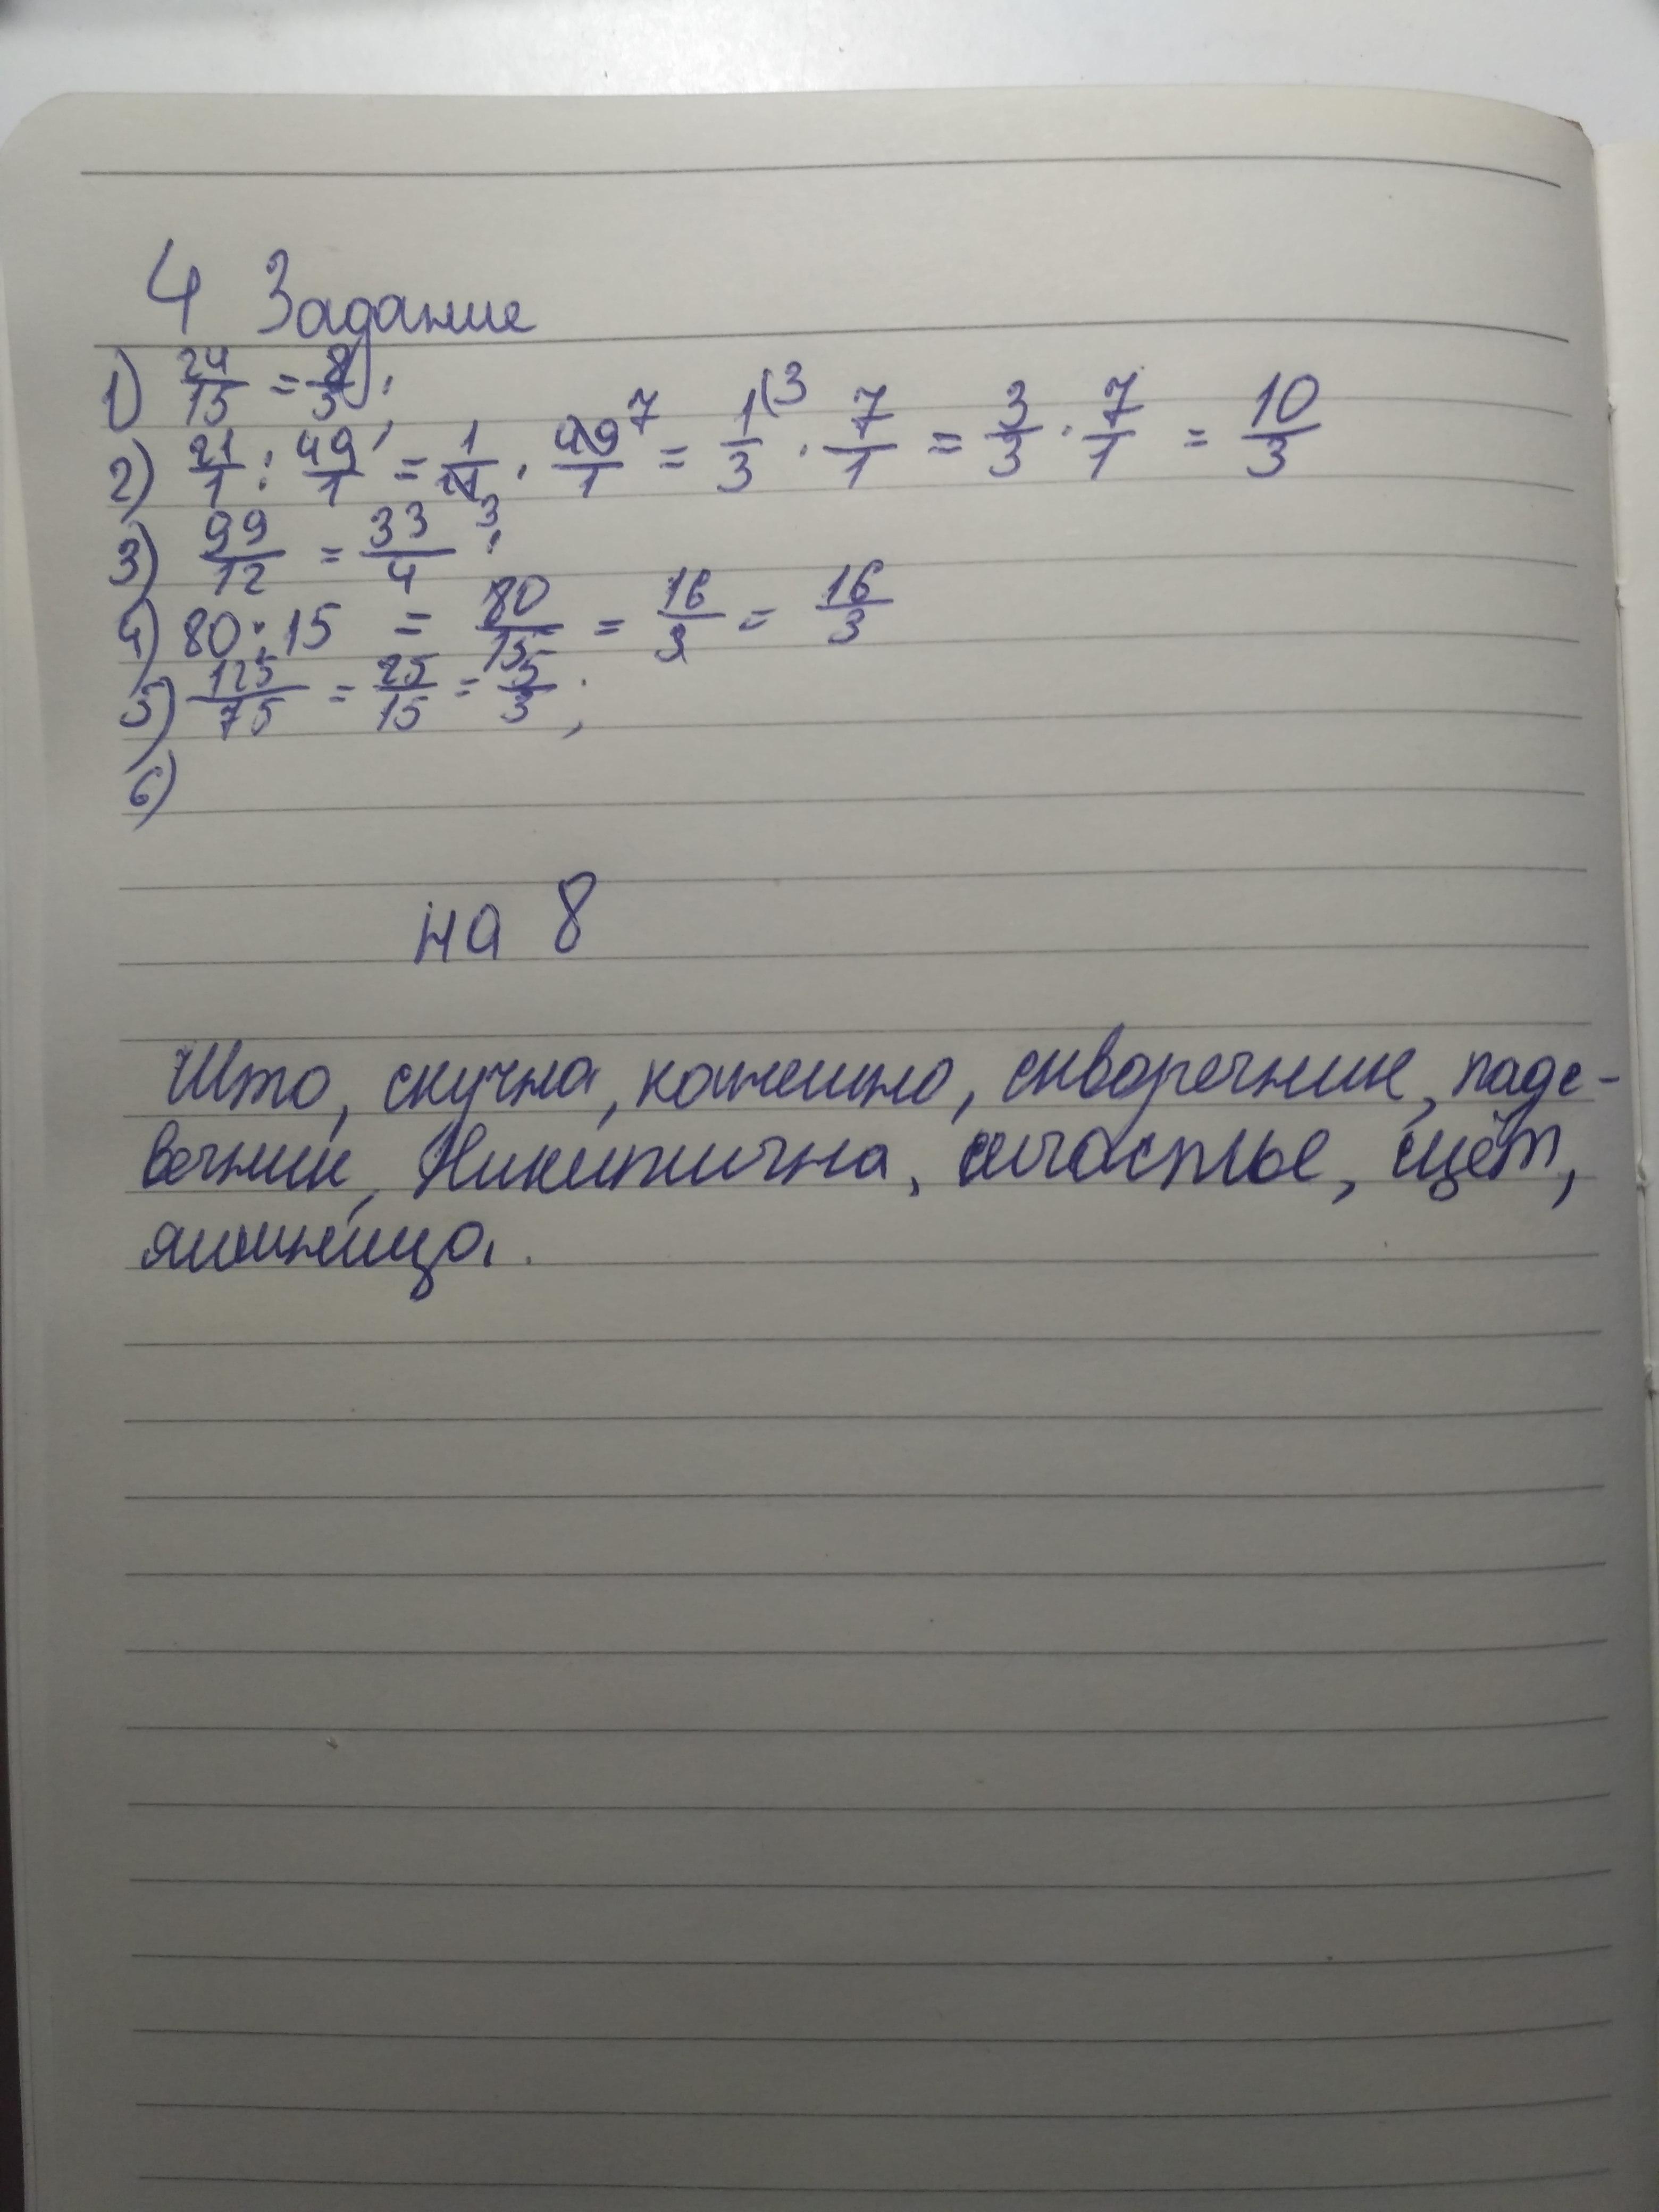 4 Задание
1) 24/15 = 8/5;
2) 21/1 : 49/1 = 1/21 · 49/1 7 = 1/3 (3 · 7/1 = 3/3 · 7/1 = 10/3
3) 99/12 = 33/4 3;
4) 80:15 = 80/15 = 16/3 = 16/3
5) 125/75 = 25/15 = 5/3;
6)
на 8
Што, скучна, конешно, скворечник, подс-
вечник, Никитична, счастье, щёт,
яишница.